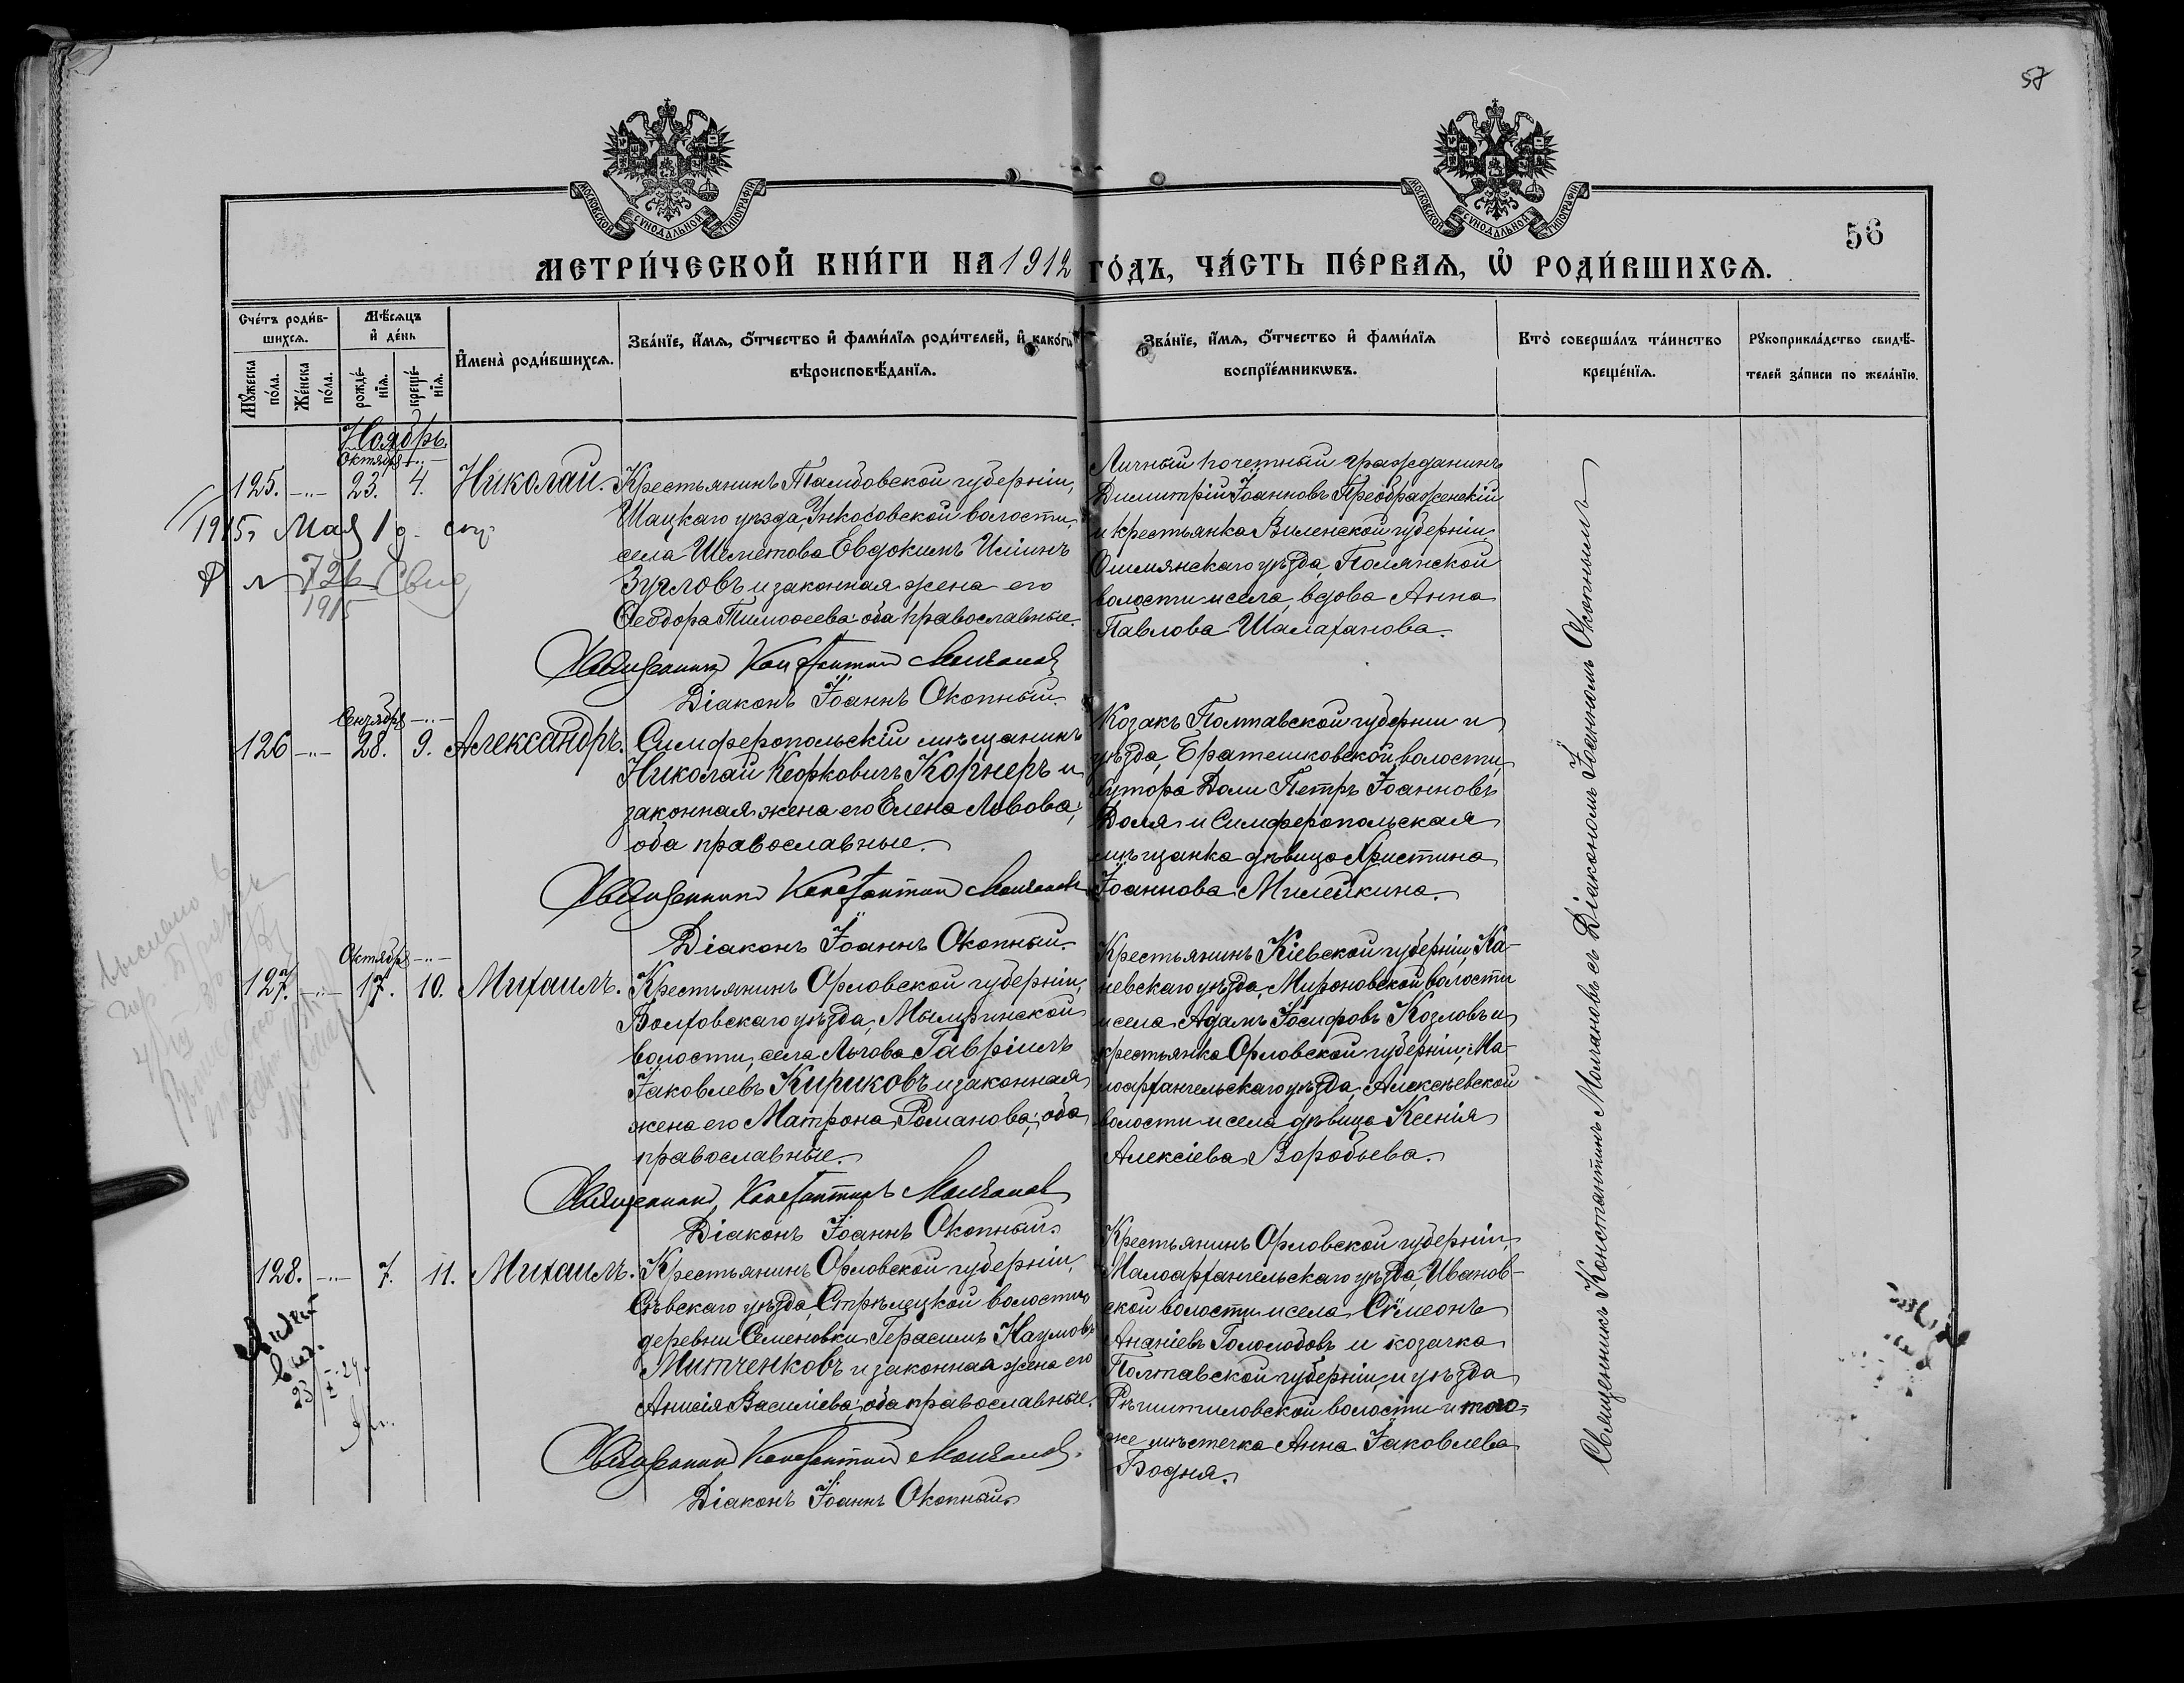 57
МОСКОВСКОЙ СѴНОДАЛЬНОЙ ТИПОГРАФІИ
МОСКОВСКОЙ СѴНОДАЛЬНОЙ ТИПОГРАФІИ
56
МЕТРИ́ЧЕСКОЙ КНИ́ГИ НА 1912 ГО́ДЪ, ЧА́СТЬ ПЕ́РВАѦ, Ѽ РОДИ́ВШИХСѦ.
Сче́тъ роди́в-
шихсѧ.
Мѣ́сѧцъ
и҆ де́нь
Мꙋ́жеска
по́ла.
Же́нска
по́ла.
рожде́-
нїѧ.
креще́-
нїѧ.
И҆мена̀ роди́вшихсѧ.
Зва́нїе, и҆́мѧ, ѻ҆́тчество и҆ фами́лїѧ роди́телей, и҆ како́гѡ
вѣроисповѣ́данїѧ.
Зва́нїе, и҆́мѧ, ѻ҆́тчество и҆ фами́лїѧ
воспрїе́мникѡвъ.
Кто̀ соверша́лъ та́инство
креще́нїѧ.
Рꙋкоприкла́дство свидѣ́-
телей за́писи по жела́нїю.
Ноябрь.
Октября -"-
125. -"- 23. 4. Николай.
Крестьянинъ Тамбовской губерніи,
Шацкаго уѣзда, Ункосовской волости,
села Шеметова Евдокимъ Иліинъ
Зуяловъ и законная жена его
Ѳеодора Тимоѳеева: оба православные.
Священникъ Константинъ Молчановъ
Діаконъ Іоаннъ Окопный.
Личный почетный гражданинъ
Димитрій Іоанновъ Преображенскій
и крестьянка Виленской губерніи
Ошмянскаго уѣзда, Полянской
волости и села, вдова Анна
Павлова Шалаханова.
1915, Мая 1 д.
№ 726 Свид
1915
Сентября -"-
126 -"- 28. 9. Александръ.
Симферопольскій мѣщанинъ
Николай Кеорковичъ Корнеръ и
законная жена его Елена Львова;
оба православные.
Священникъ Константинъ Молчановъ
Діаконъ Іоаннъ Окопный.
Козакъ Полтавской губерніи и
уѣзда, Братешковской волости,
хутора Доли Петръ Іоанновъ
Доля и Симферопольская
мѣщанка дѣвица Христина
Іоаннова Милейкина.
Октября -"-
127. -"- 17. 10. Михаилъ.
Крестьянинъ Орловской губерніи,
Болховскаго уѣзда, Мымринской
волости, села Льгова Гавріилъ
Іаковлевъ Кириковъ и законная
жена его Матрона Романова; оба
православные.
Священникъ Константинъ Молчановъ
Діаконъ Іоаннъ Окопный.
Крестьянинъ Кіевской губерніи, Ка-
невскаго уѣзда, Мироновской волости
и села Адамъ Іосифовъ Козловъ и
крестьянка Орловской губерніи, Ма-
лоархангельскаго уѣзда, Алексѣевской
волости и села дѣвица Ксенія
Алексіева Воробьева.
выслано в
128. -"- 7. 11. Михаилъ.
Крестьянинъ Орловской губерніи,
Сѣвскаго уѣзда, Стрѣлецкой волости,
деревни Семеновки Герасимъ Наумовъ
Митченковъ и законная жена его
Анисія Василіева; оба православные.
Священникъ Константинъ Молчановъ.
Діаконъ Іоаннъ Окопный.
Крестьянинъ Орловской губерніи,
Малоархангельскаго уѣзда, Иванов-
ской волости и села Сѷмеонъ
Ананіевъ Гололобовъ и козачка
Полтавской губерніи и уѣзда
Рѣшетиловской волости и того-
же мѣстечка Анна Іаковлева
Бодня.
Священникъ Константинъ Молчановъ съ Діакономъ Іоанномъ Окопнымъ